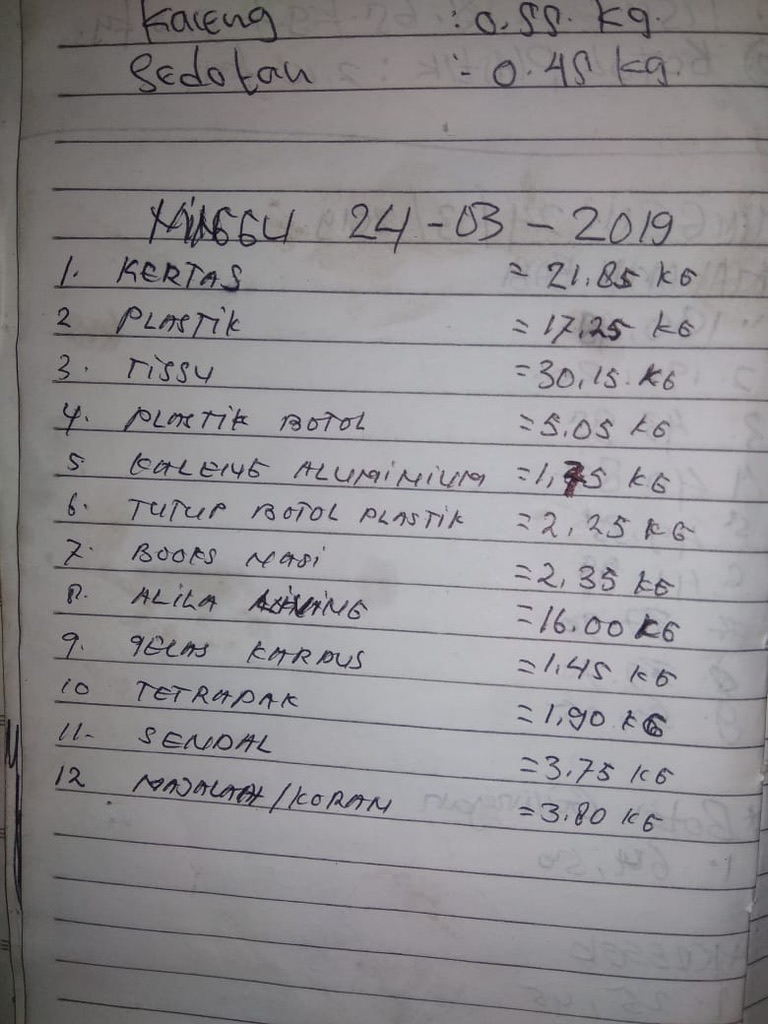 Kaceng : 0.55. kg.
Sedotan :- 0.45 kg.
MINGGU 24-03-2019
1. KERTAS = 21.85 KG
2 PLASTIK = 17.25 KG
3. TISSU = 30,15. KG
4. PLASTIK BOTOL = 5.05 KG
5 KALENG ALUMINIUM = 1,75 KG
6. TUTUP BOTOL PLASTIK = 2,25 KG
7. BOOKS NASI = 2,35 KG
8. ALILA = 16.00 KG
9. GELAS KARDUS = 1.45 KG
10 TETRAPAK = 1,90 KG
11- SENDAL = 3.75 KG
12 MAJALAH/KORAN = 3.80 KG